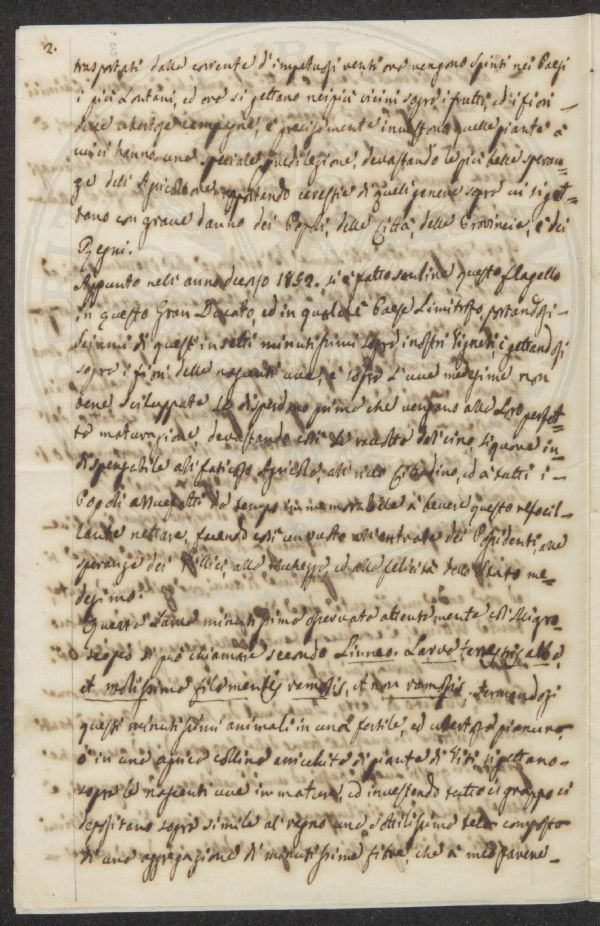 2.
trasportati dalla corrente d'impetuosi venti ora vengono spinti nei Paesi
i più lontani, ed ora si gettano nei più vicini sopra i frutti, ed i fiori
delle ubertose campagne, e precisamente investono quelle piante a
cui hanno una speciale predilezione, devastando le più belle speran-
ze degli Agricoltori apportando carestia di quel genere sopra cui si get=
tano con grave danno dei Popoli, delle Città, delle Provincie, e dei
Regni.
Appunto nell'anno scorso 1852. si è fatto sentire questo flagello
in questo Gran-Ducato, ed in qualche Paese Limitrofo, portandosi-
sciami di questi insetti minutissimi sopra i nostri Vigneti, e gettandosi
sopra i fiori delle nascenti uve, e sopra l'uve medesime non
bene sviluppate le disperdono prima che vengano alla loro perfet=
ta maturazione, devastando così la raccolta del vino, liquore in
dispensabile all'faticoso Agricola, all' Cittadino, ed a tutti i-
Popoli assuefatti da tempo immemorabile a bevere questo refocil-
lante nettare, facendo così un vuoto all'entrate dei Possidenti, alle
speranze dei Villici, alla ricchezza, ed alla felicità dello Stato me=
desimo.
Questa Larva minutissima osservata attentamente col Migro-
scopio si può chiamare secondo Linneo. Larva terrestris alba,
et mollissima filamentis ramosis, et non ramosis. Fermandosi
questi minutissimi animali in una fertile, ed ubertosa pianura,
o in una aprica collina arricchita di piante di Viti, si gettano-
sopra le nascenti uve immature, ed investendo tutto il grappo ci
depositano sopra simile al ragno una sottilissima tela composta
di una aggregazione di minutissime fibre, che a mio parere-